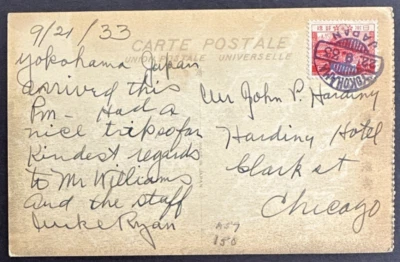 9/21/33
Yokohama Japan
arrived this
Pm - Had a
nice trip so far
Kindest regards
to Mr Williams
and the staff
Mike Ryan
CARTE POSTALE
UNION POSTALE UNIVERSELLE
YOKOHAMA
JAPAN
Mr John P. Harding
Harding Hotel
Clark st
Chicago
150